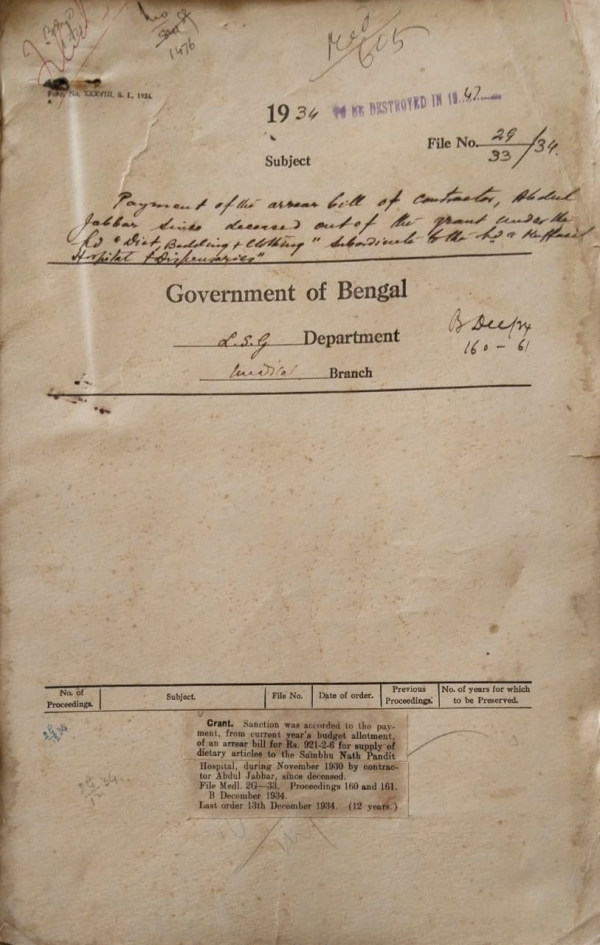 1476
Med
605
Form No. XXXVIII, S. I., 1924
19 34 TO BE DESTROYED IN 19 47
File No. 2G/33/34
Subject
Payment of the arrear bill of contractor, Abdul
Jabbar since deceased out of the grant under the
hd "Diet, Bedding & Clothing" subordinate to the hd "Muffasil
Hospital & Dispensaries"
Government of Bengal
L.S.G Department
B Dec/34
160 - 61
Medical Branch
No. of Proceedings. Subject. File No. Date of order. Previous Proceedings. No. of years for which to be Preserved.
Grant. Sanction was accorded to the pay-
ment, from current year's budget allotment,
of an arrear bill for Rs. 921-2-6 for supply of
dietary articles to the Sambhu Nath Pandit
Hospital, during November 1930 by contrac-
tor Abdul Jabbar, since deceased.
File Medl. 2G—33. Proceedings 160 and 161.
B December 1934.
Last order 13th December 1934. (12 years.)